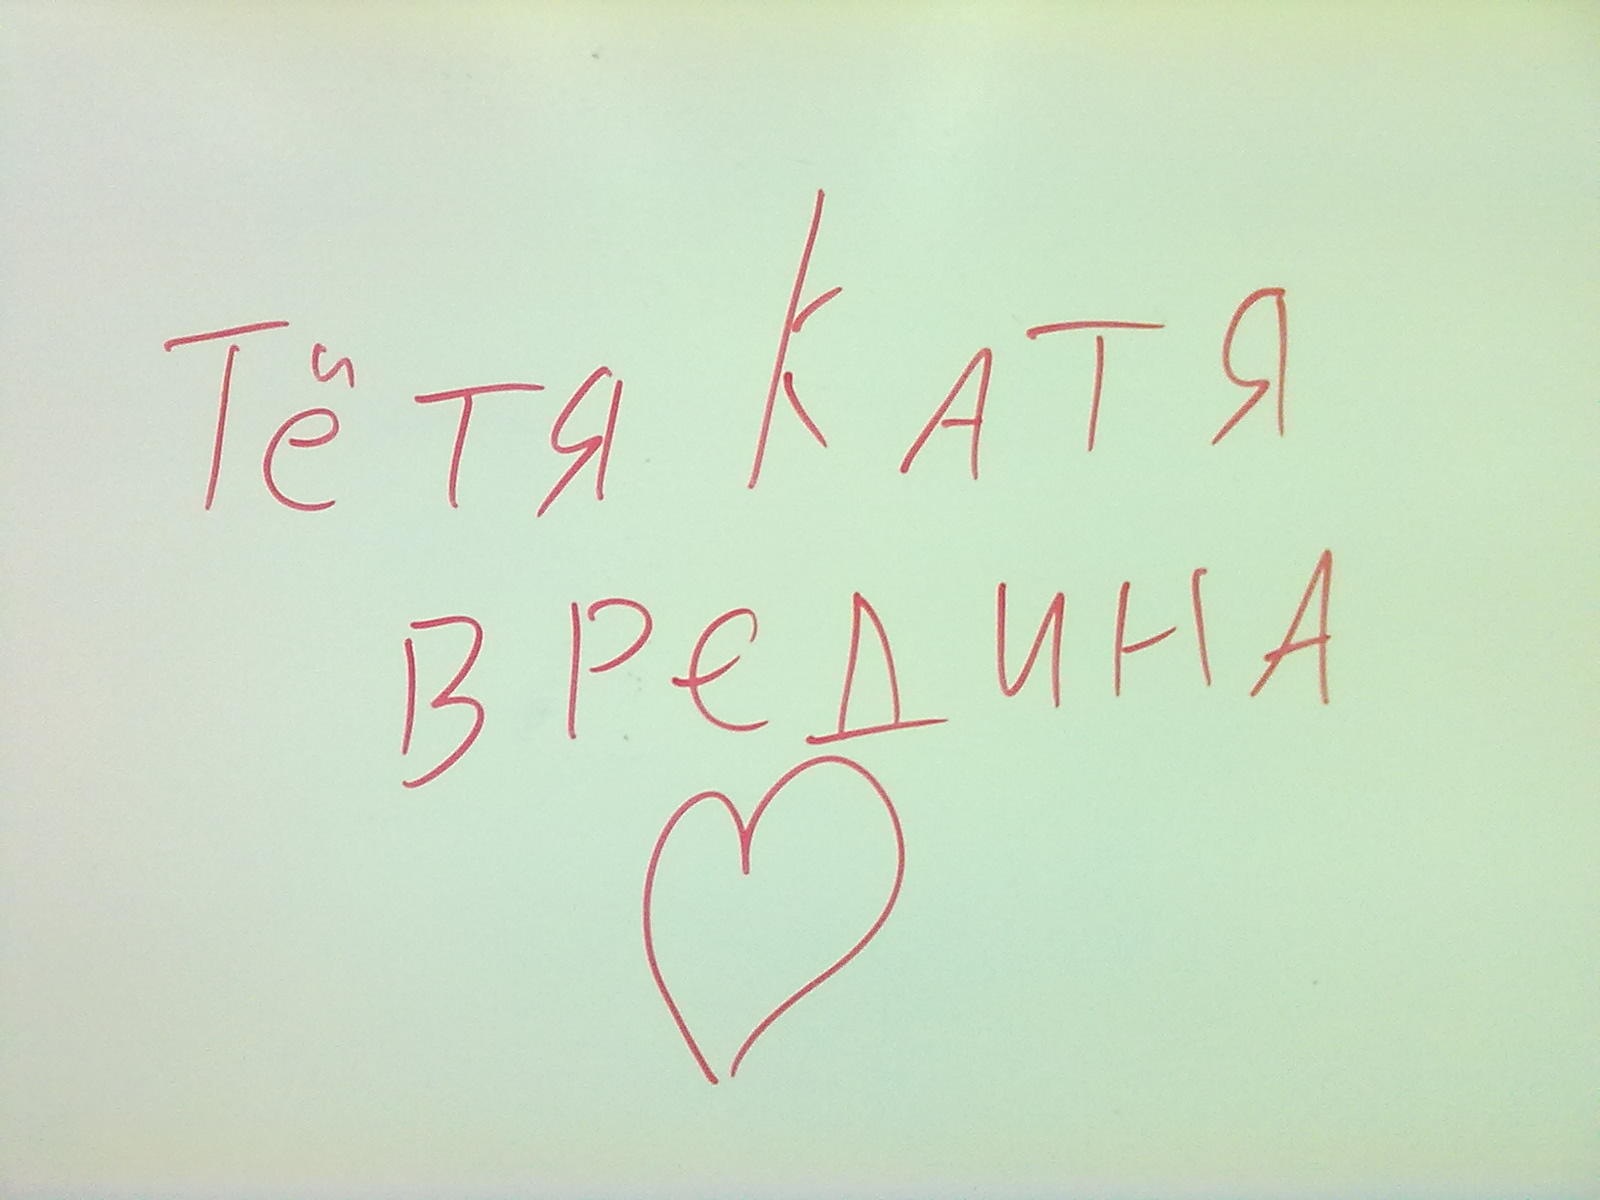 Тётя Катя
ВРЕДИНА